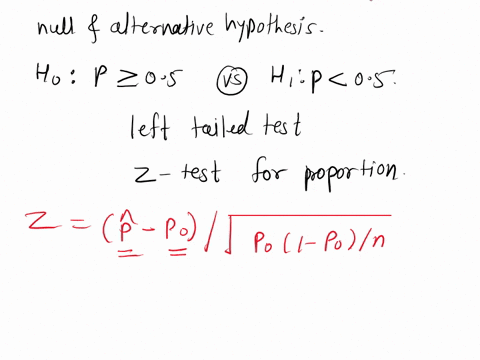 null & alternative hypothesis.
H₀ : P ≥ 0.5 VS H₁ : p < 0.5.
left tailed test
Z - test for proportion.
Z = (p̂ - p₀) / √ p₀ (1 - p₀) / n